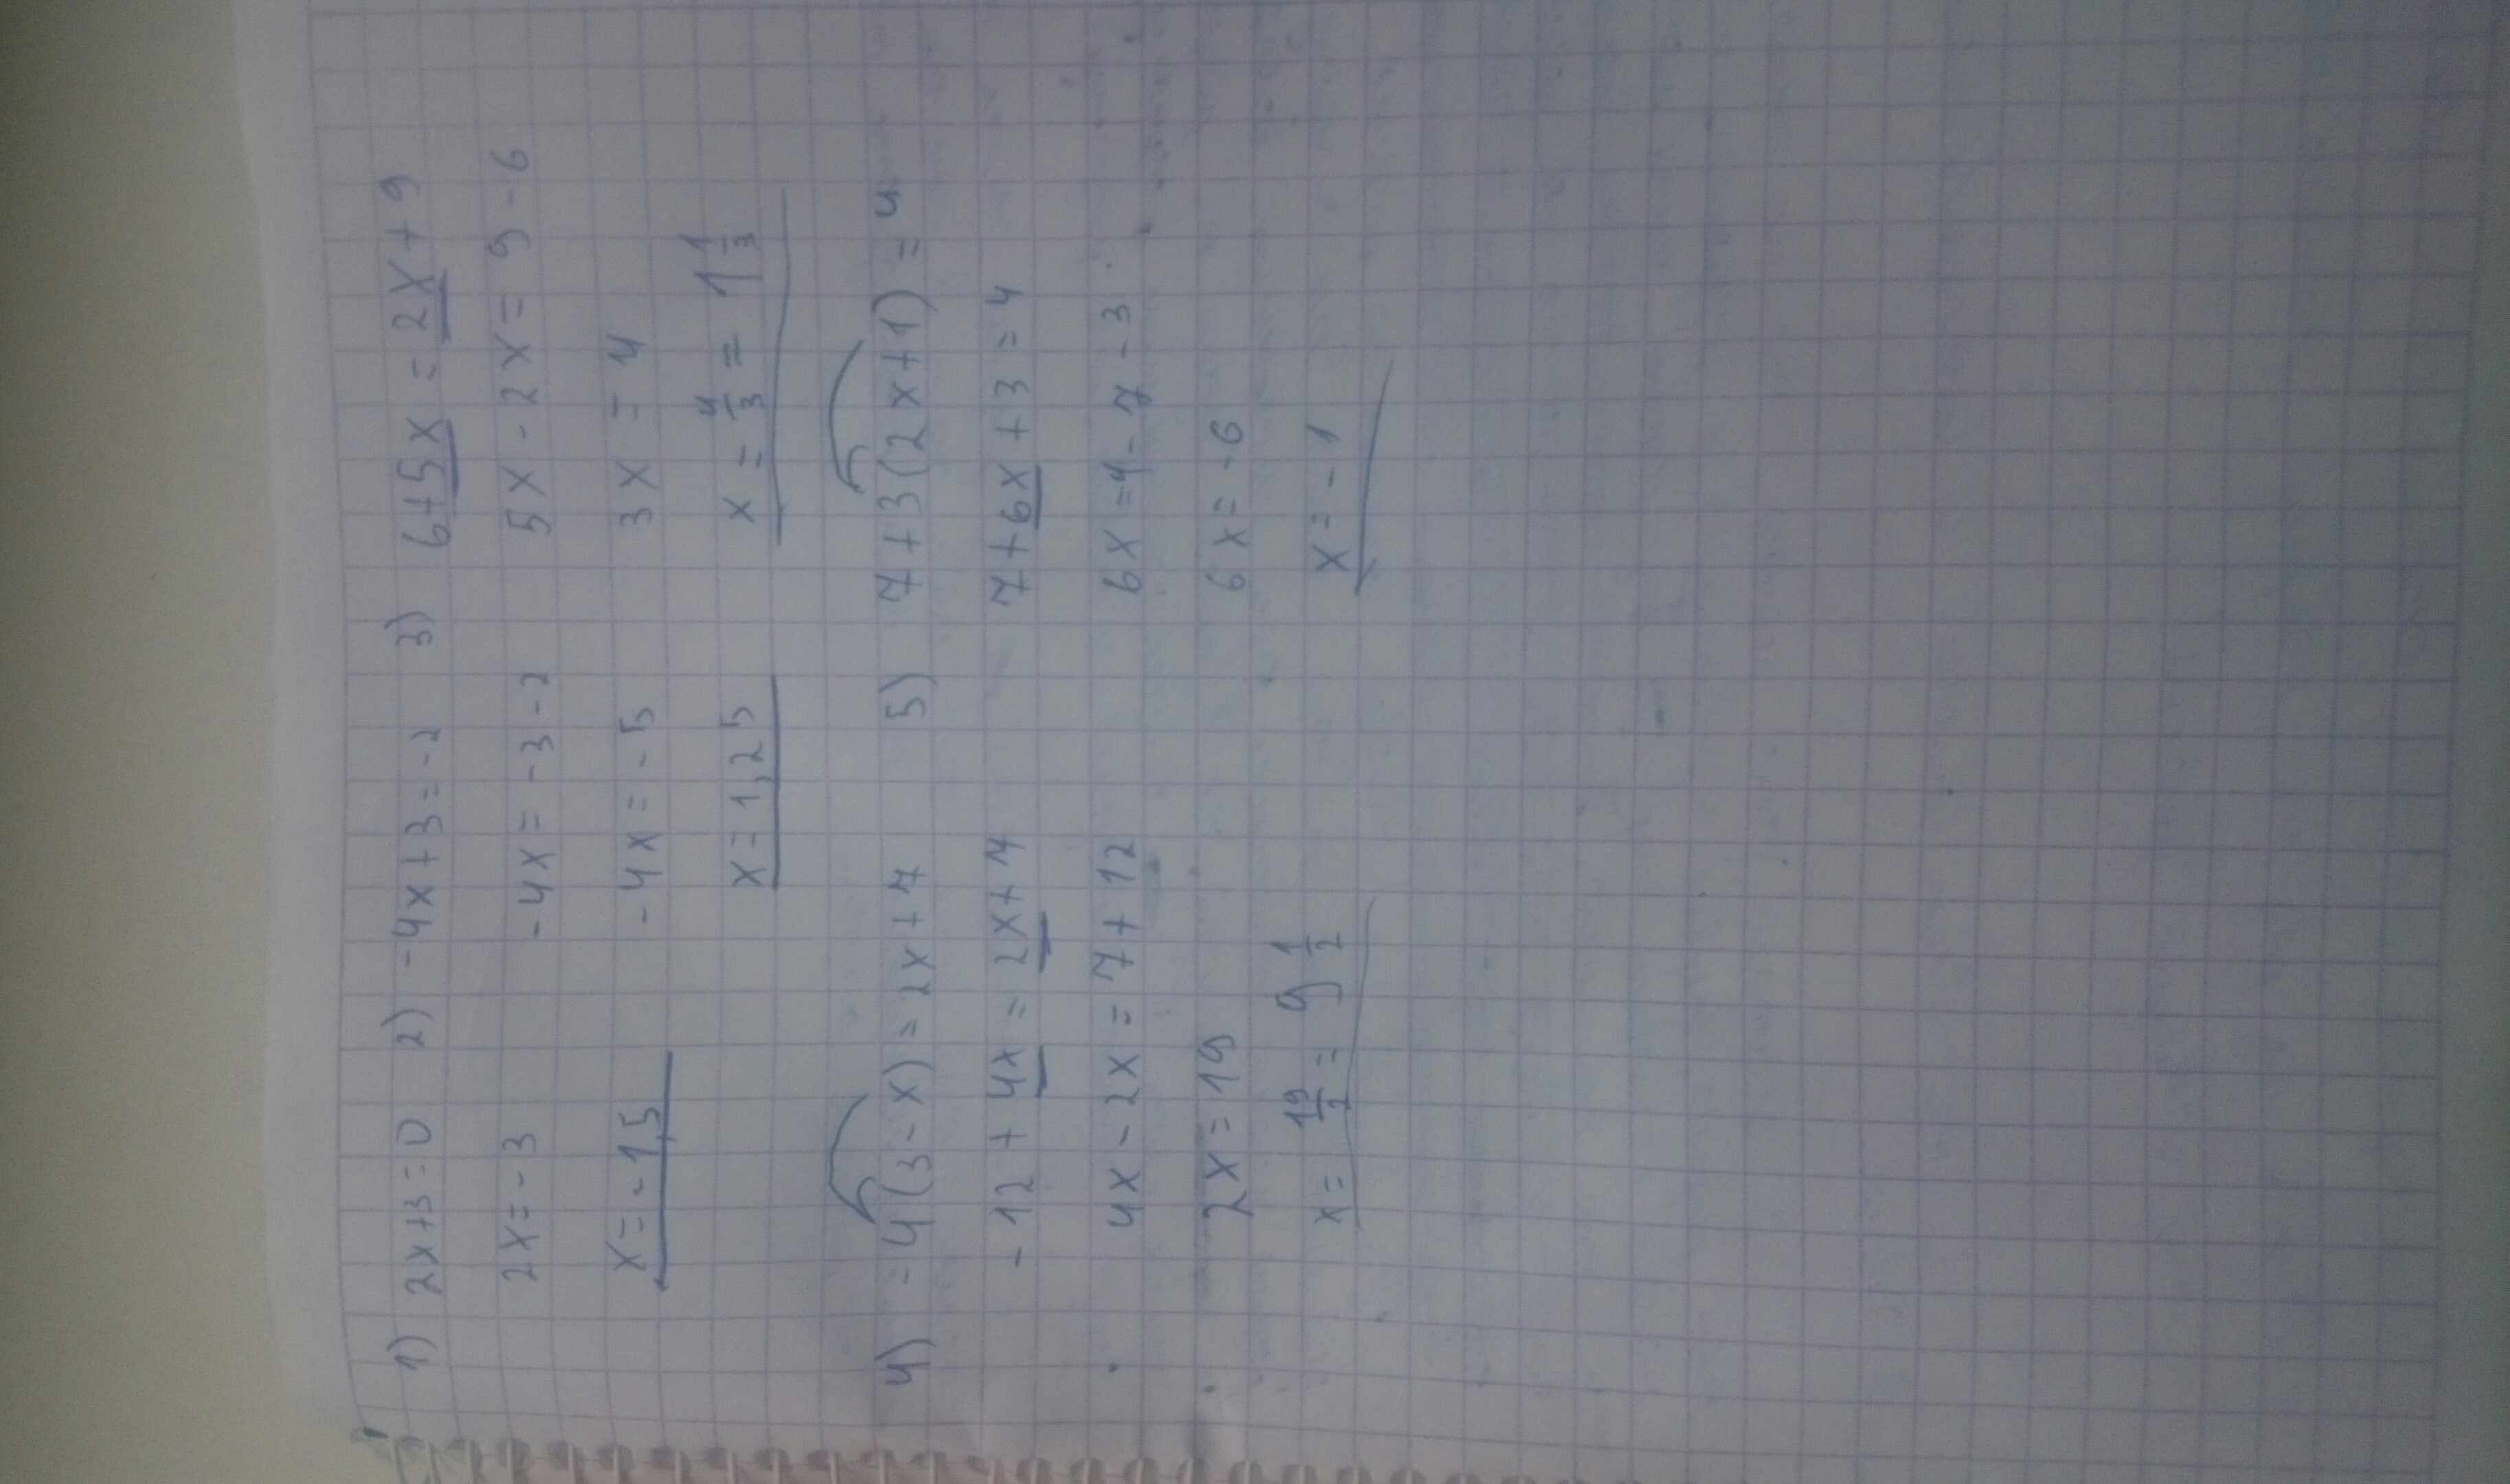 1) 2x+3=0   2) -4x+3=-2   3) 6+5x = 2x+9
2x=-3   -4x=-3-2   5x-2x=9-6
x=-1,5   -4x=-5   3x=4
x=1,25   x=4/3= 1 1/3
4) -4(3-x)=2x+7   5) 7+3(2x+1)=4
-12+4x=2x+7   7+6x+3=4
4x-2x=7+12   6x=4-7-3
2x=19   6x=-6
x=19/2= 9 1/2   x=-1